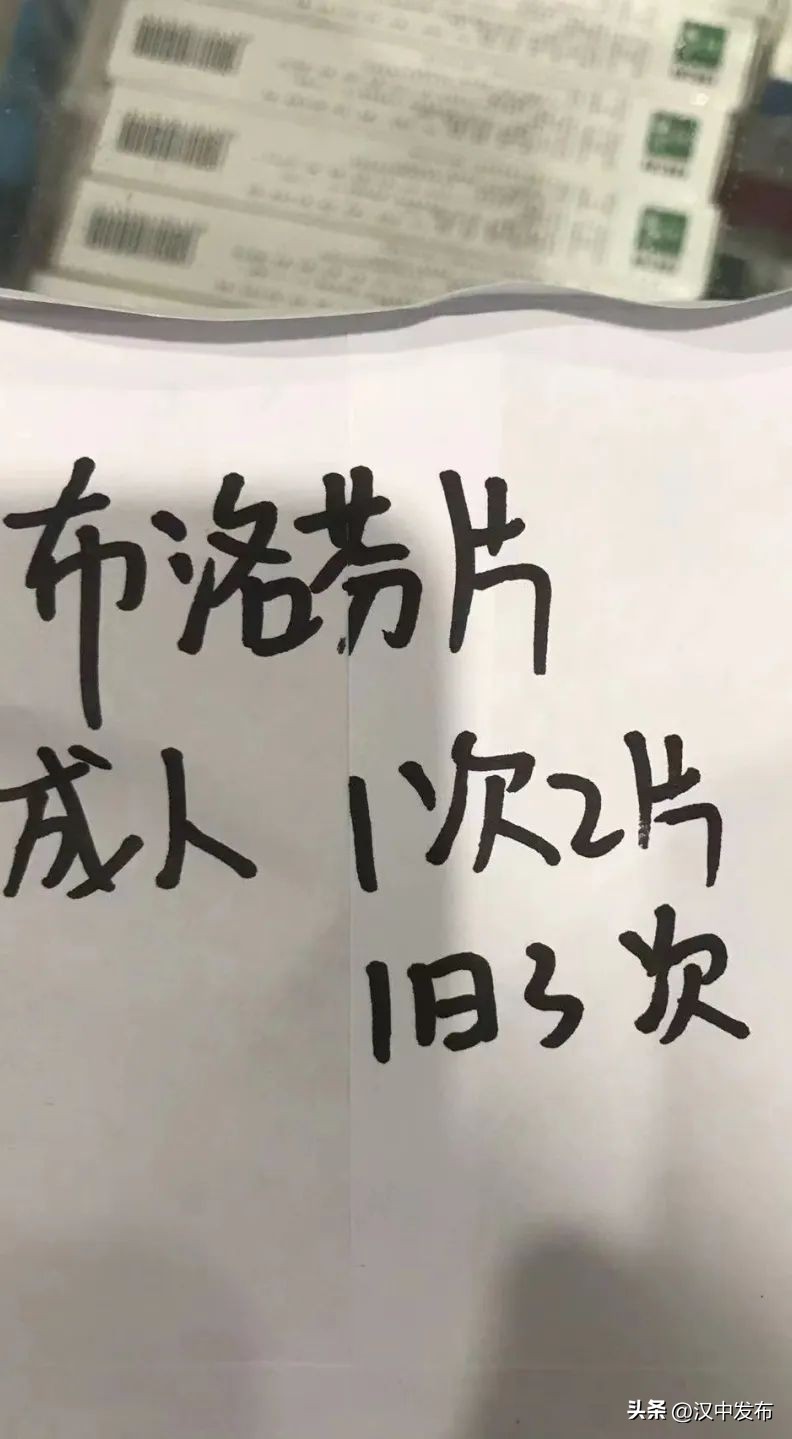 布洛芬片
成人 1次2片
1日3次
头条 @汉中发布